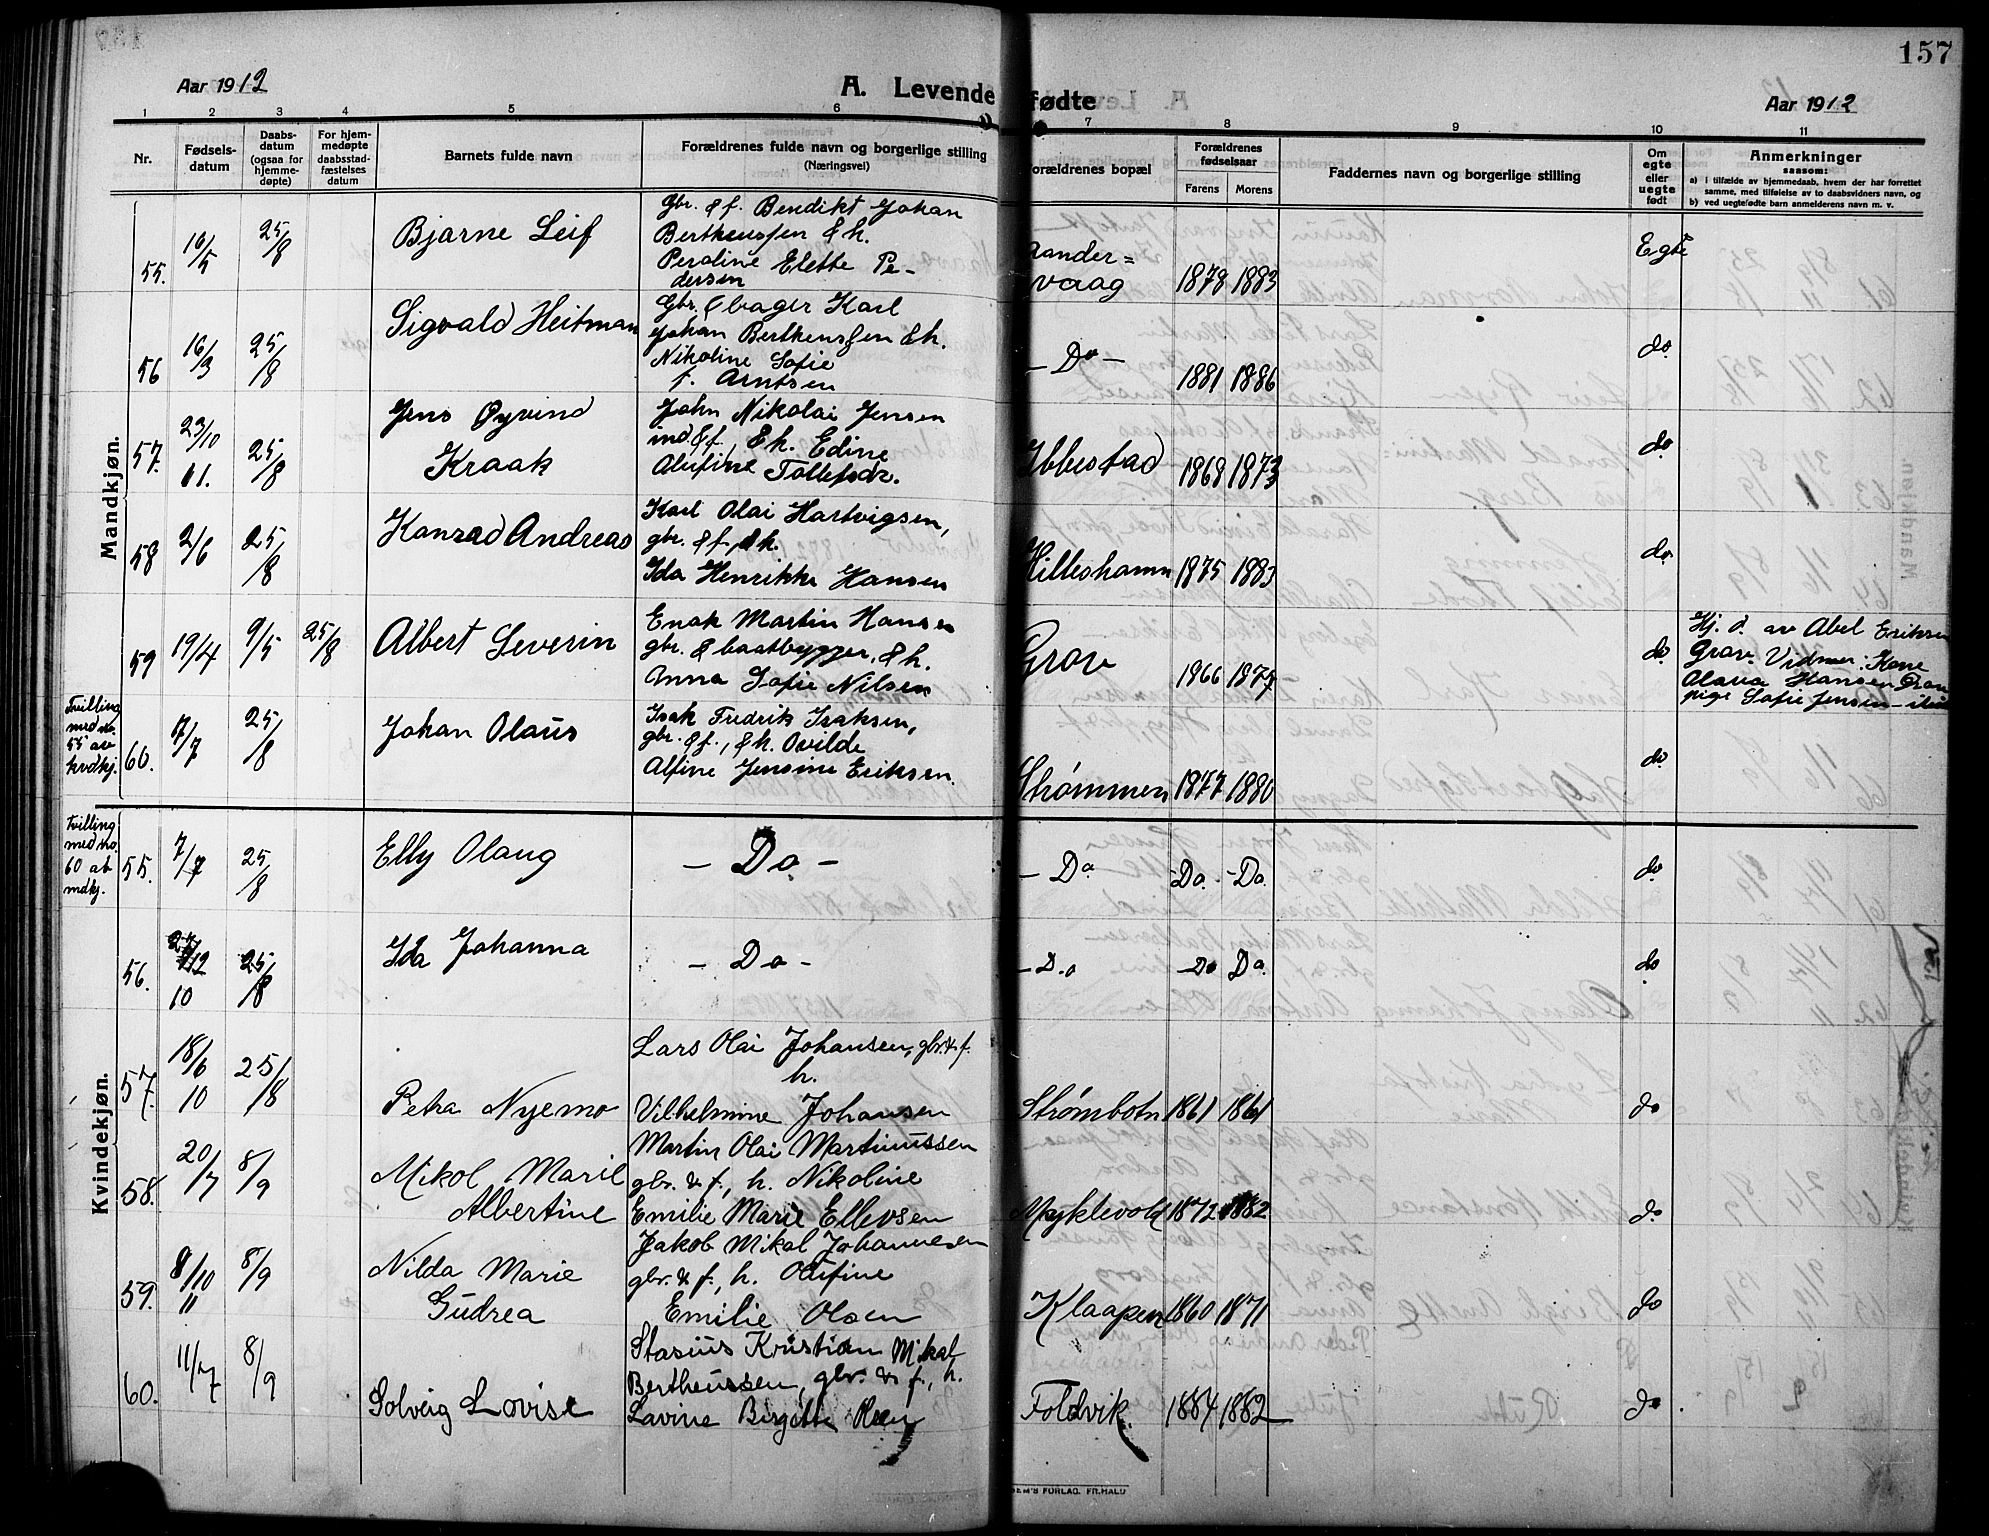 157
Aar 1912
A. Levende fødte
Aar 1912
1 2 3 4 5 6 7 8 9 10 11
Nr.
Fødsels-
datum
Daabs-
datum
(ogsaa for
hjemme-
døpte)
For hjem-
medøpte
daabsstad-
fæstelses
datum
Barnets fulde navn
Forældrenes fulde navn og borgerlige stilling
(Næringsvei)
Forældrenes bopæl
Forældrenes
fødselsaar
Farens Morens
Faddernes navn og borgerlige stilling
Om
egte
eller
uegte
født
Anmerkninger
saasom:
a) i tilfælde av hjemmedaab, hvem der har forrettet
samme, med tilføielse av to daabsvidners navn, og
b) ved uegtefødte barn anmelderens navn m. v.
Mandkjøn.
55. 16/5 25/8 Bjarne Leif
Gbr. & f. Bendikt Johan
Bertheussen & h.
Peraline Elette Pe-
dersen
rander=
vaag 1878 1883 Egte
56 16/3 25/8 Sigvald Heitman
Gbr. & bager Karl
Johan Bertheussen & h.
Nikoline Sofie
f. Arntsen
- Do - 1881 1886 do.
57. 23/10 11. 25/8 Jens Øyvind
Kraak
John Nikolai Jensen
ind. & f., & h. Edine
Alufine Tollefsdr.
Ibbestad 1868 1873 do.
58 2/6 25/8 Konrad Andreas
Karl Olai Hartvigsen,
gbr. & f., & h.
Ida Henrikke Hansen
Hilleshamn 1875 1883 do.
59 19/4 9/5 25/8 Albert Severin
Enok Martin Hansen
gbr. & baatbygger, & h.
Anna Sofie Nilsen
Grov 1866 1875 do.
Hj. d. av Abel Eriksen
Grov. Vidner: Kone
Olava Hansen Grov
pige Sofie Jensen -
Tvilling
med no.
55 av
kvdkj.
60. 7/7 25/8 Johan Olaus
Isak Fredrik Isaksen,
gbr. & f., & h. Ovilde
Alfine Jensine Eriksen.
Strømmen 1877 1880 do.
Kvindekjøn.
Tvilling
med no.
60 at
mdkj.
55. 7/7 25/8 Elly Olaug - Do. - - Do Do. - Do. do.
56. 12 10 25/8 Ida Johanna - Do - - Do Do Do. do.
57. 18/6 10 25/8 Petra Nyemo
Lars Olai Johansen, gbr. & f.
h.
Vilhelmine Johansen
Strømbotn 1861 1861 do
58. 20/7 8/9 Mikol Marie
Albertine
Martin Olai Martinussen
gbr. & f., h. Nikoline
Emilie Marie Ellevsen
Myklevold 1872 1882 do
59. 8/10 11 8/9 Nilda Marie
Gudrea
Jakob Mikal Johannesen
gbr. & f., h. Olufine
Emilie Olsen
Klaapen 1860 1871 do
60. 11/7 8/9 Solveig Lovise
Stasius Kristian Mikal
Bertheussen, gbr. & f., h.
Lavine Birgitte Olsen
Foldvik. 1884 1882 do
FORLAG. FR.HALD